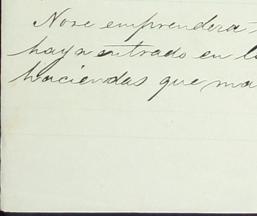 No se emprendera
haya entrado en l
haciendas que ma